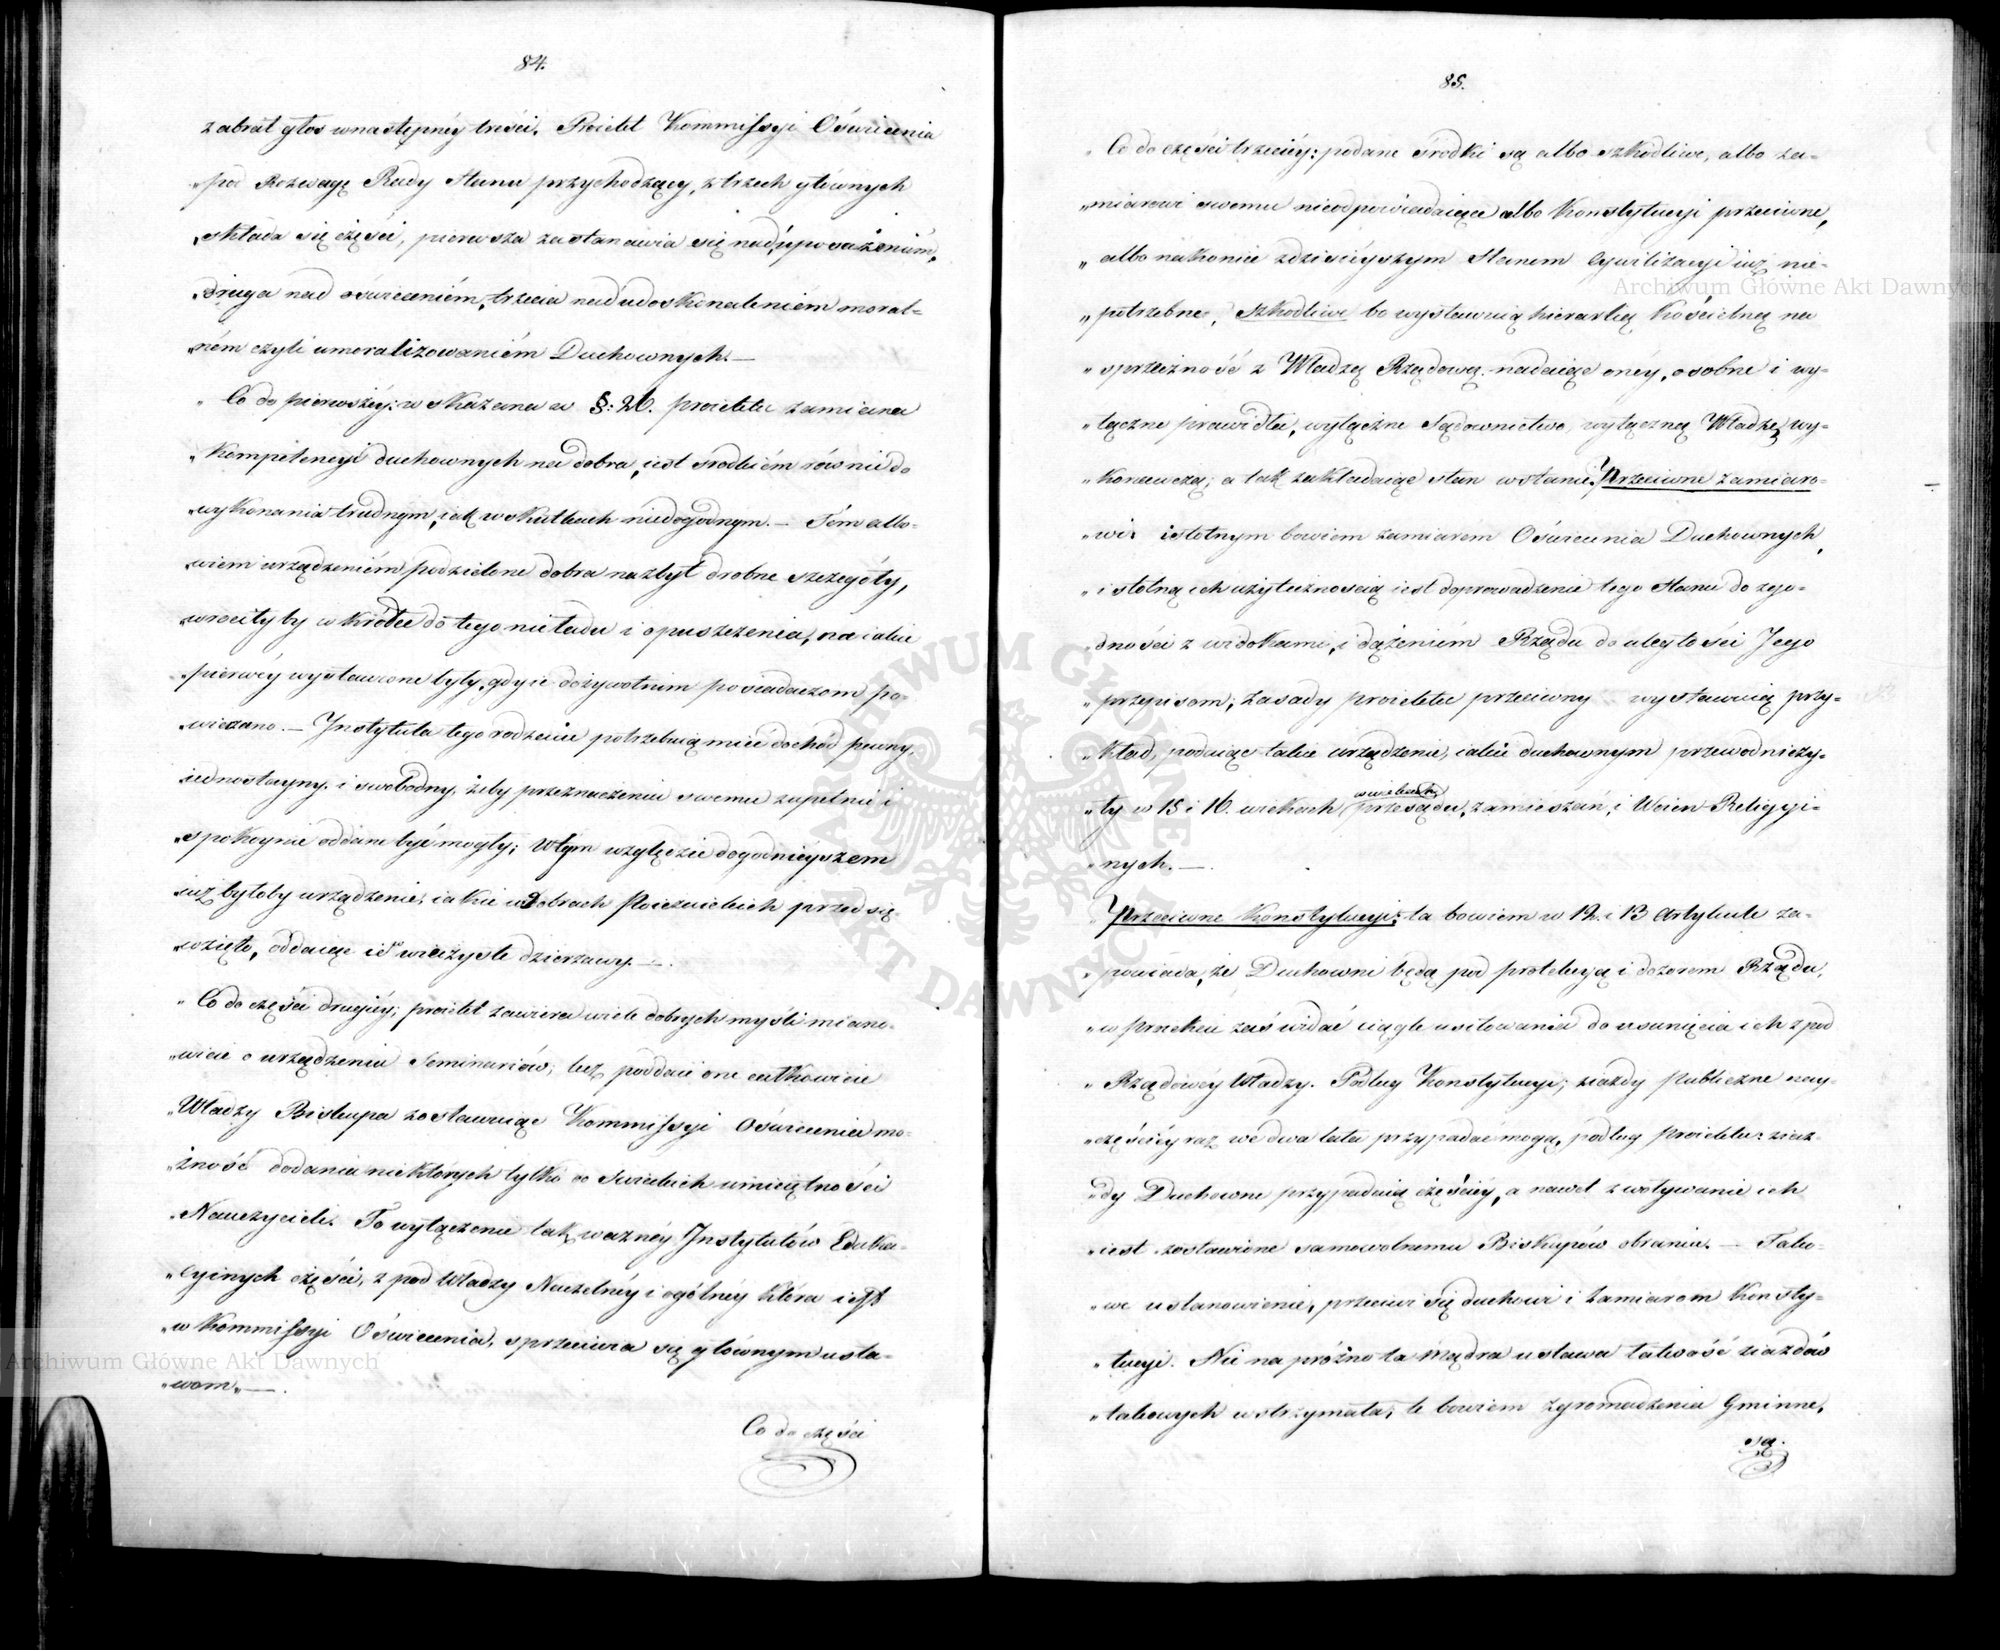 84.
zabrał głos wnastępnéy treści. Proiekt Kommissyi Oświecenia
„pod Rozwagę Rady Stanu przychodzący, z trzech głównych
„składa się części, pierwsza zastanawia się nad uposażeniém,
„druga nad oświeceniém, trzecia nad udoskonaleniém moral-
„ném czyli umoralizowaniém Duchownych. —
„Co do pierwszéy: wskazana w §: 26. proiektu zamiana
„Kompetencyi duchownych na dobra, iest środkiém równie do
„wykonania trudnym, iak w skutkach niedogodnym. — Tém albo-
„wiem urządzeniém podzielone dobra na zbyt drobne szczegóły,
„wróciłyby w krótce do tego nieładu i opuszczenia, na iakie
„pierwéy wystawione były, gdy ie dożywotnim posiadaczom po-
„wierzano. — Instytuta tego rodzaiu potrzebuią mieć dochód pewny,
„iednostayny, i swobodny, żeby przeznaczeniu swemu zupełnie i
„spokoynie oddane być mogły; Wtym względzie dogodnieyszem
„iuż byłoby urządzenie, iakie w Dobrach Poiezuickich przedsię-
„wzięto, oddaiąc ie w wieczyste dzierżawy. —
„Co do części drugiéy; proiekt zawiera wiele dobrych myśli miano-
„wicie o urządzeniu Seminariów, lecz poddaie one całkowicie
„Władzy Biskupa zostawuiąc Kommissyi Oświecenia mo-
„żność dodania niektórych tylko do Świeckich umieiętności
„Nauczycieli. To wyłączenie tak ważnéy Instytutów Eduka-
„cyinych części, z pod Władzy Naczelnéy i ogólnéy która iest
„w Kommissyi Oświecenia, sprzeciwia się głównym usta-
„wom. —
Co do części
85.
„Co do części trzeciéy: podane środki są albo szkodliwe, albo za-
„miarowi swemu nieodpowiadaiące albo Konstytucyi przeciwne,
„albo nakoniec zdzisiéyszym Stanem Cywilizacyi iuż nie-
„potrzebne, Szkodliwe bo wystawuią hierarhią Kościelną na
„sprzeczność z Władzą Rządową, nadaiąc onéy, osobne i wy-
„łączne prawidła, wyłączne Sądownictwo, wyłączną Władzę wy-
„konawczą; a tak zakładaiąc stan w stanie. Przeciwne zamiaro-
„wi: istotnym bowiem zamiarem Oświecenia Duchownych,
„istotną ich użytecznością iest doprowadzenie tego Stanu do zgo-
„dności z widokami, i dążeniém Rządu do uległości Jego
„przepisom; Zasady proiektu przeciwny wystawuią przy-
„kład, podaiąc takie urządzenia, iakie duchownym przewodniczy-
„ły w 15 i 16. wiekach wiekach przesądu, zamieszań, i Woien Religyi-
„nych. —
„Przeciwne Konstytucyi; ta bowiem w 12. i 13 Artykule za-
„powiada, że Duchowni będą pod protekcyą i dozorem Rządu,
„w proiekcie zaś widać ciągłe usiłowania do usunięcia ich z pod
„Rządowéy Władzy. Podług Konstytucyi; ziazdy publiczne nay-
„częściéy raz we dwa lata przypadać mogą, podług proiektu: ziaz-
„dy Duchowne przypadaią częściéy, a nawet zwoływanie ich
„iest zostawione samowolnemu Biskupów obraniu. — Tako-
„we ustanowienie, przeciwi się duchowi i zamiarom Konsty-
„tucyi. Nie na próżno ta mądra ustawa takość ziazdów
„takowych wstrzymała, te bowiem zgromadzenia Gminne,
są.
ARCHIWUM GŁÓWNE AKT DAWNYCH
Archiwum Główne Akt Dawnych
Archiwum Główne Akt Dawnych